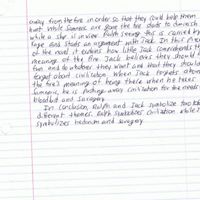 away from the fire in order so that they could help them
hunt. While Samneric are gone the fire starts to diminish
while a ship is in view. Ralph seeing this is carried by
rage and starts an argument with Jack. In this
of the novel it explains how little Jack comprehends the
meaning of the fire. Jack believes they should
fun and do whatever they want and that they should
forget about civilization. When Jack forgets about
the fire's meaning of being there when he takes
Samneric, he is pushing away civilization for the needs
bloodlust and savagery.
In conclusion, Ralph and Jack symbolize two
different themes. Ralph symbolizes civilization while
symbolizes hedonism and savagery.